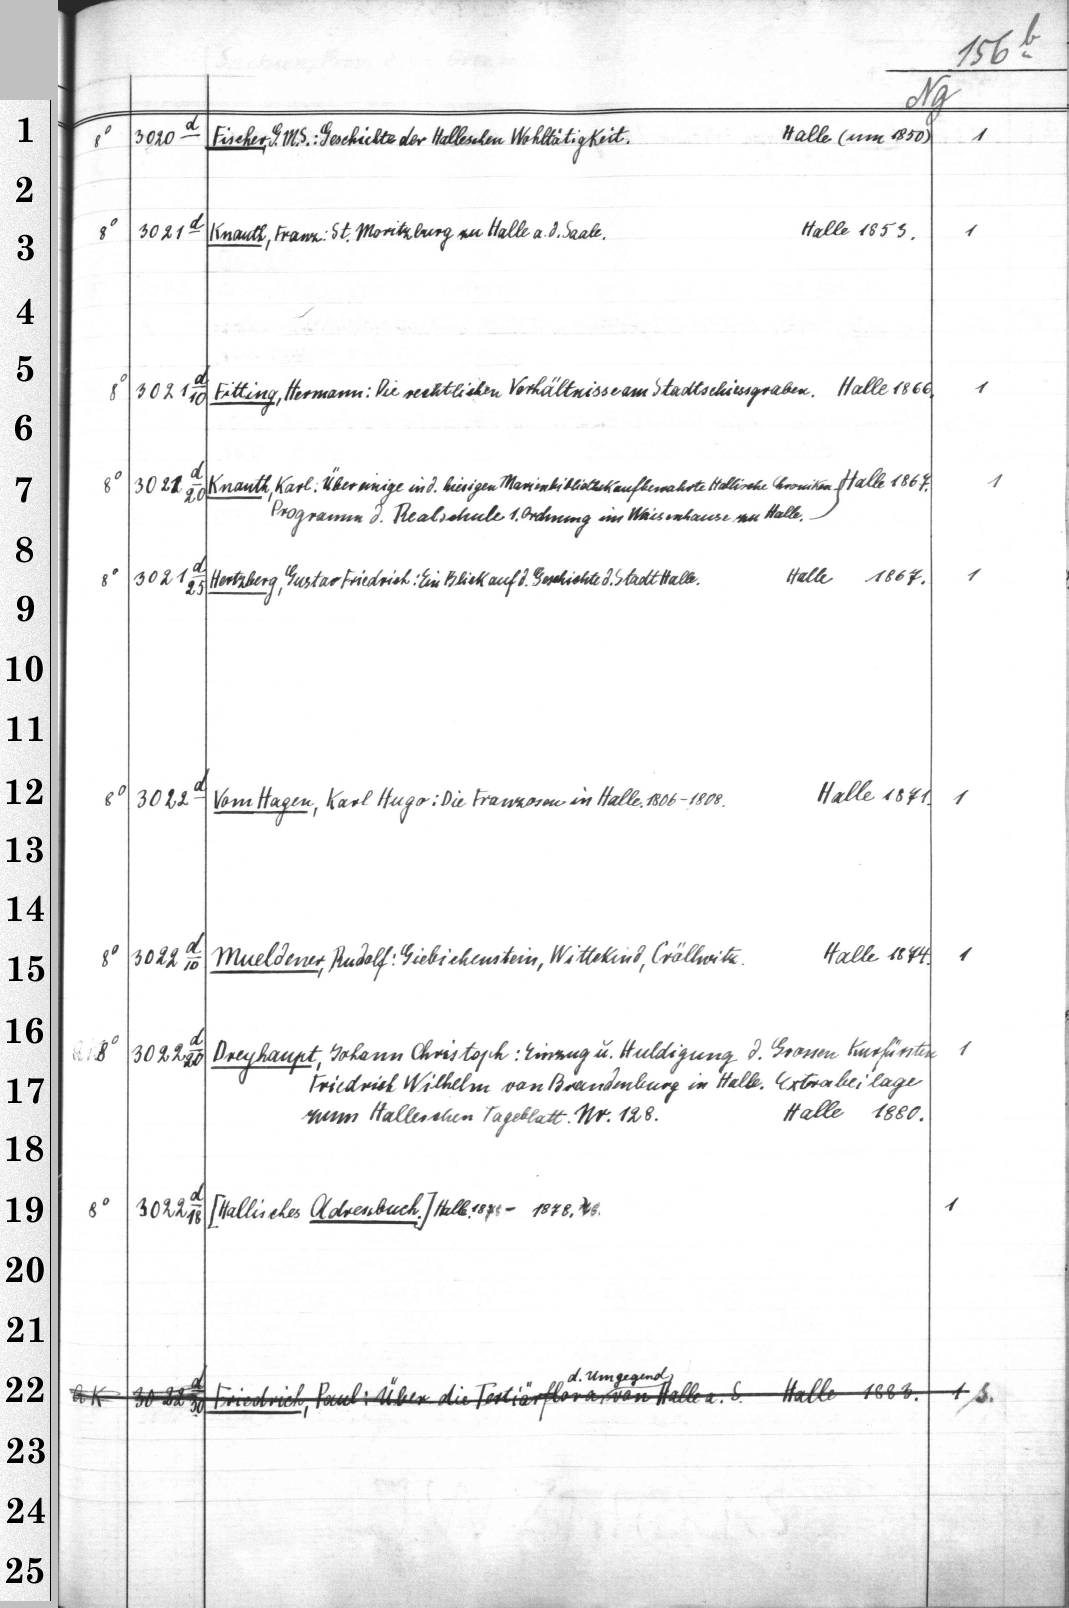 156 b
Ng
1
8° 3020 d Fischer, G.M.S.: Geschichte der Halleschen Wohltätigkeit. Halle (um 1850) 1
2
8° 3021 d Knauth, Franz: St. Moritzburg zu Halle a.d. Saale. Halle 1853. 1
3
4
5
8° 3021 d/10 Fitting, Hermann: Die rechtlichen Verhältnisse am Stadtschiessgraben. Halle 1866. 1
6
7
8° 3021 d/20 Knauth, Karl: Über einige in d. hiesigen Marienbibliothek aufbewahrte Hallische Chroniken. Halle 1867. 1
Programm d. Realschule 1. Ordnung im Waisenhause zu Halle.
8
8° 3021 d/25 Hertzberg, Gustav Friedrich: Ein Blick auf d. Geschichte d. Stadt Halle. Halle 1867. 1
9
10
11
12
8° 3022 d Vom Hagen, Karl Hugo: Die Franzosen in Halle. 1806-1808. Halle 1871. 1
13
14
15
8° 3022 d/10 Mueldener, Rudolf: Giebichenstein, Wittekind, Cröllwitz. Halle 1874. 1
16
8° 3022 d/20 Dreyhaupt, Johann Christoph: Einzug u. Huldigung d. Grossen Kurfürsten 1
17
Friedrich Wilhelm von Brandenburg in Halle. Extrabeilage
zum Halleschen Tageblatt. Nr. 128. Halle 1880.
18
19
8° 3022 d/18 [Hallisches Adressbuch.] Halle. 1878- 1878. 1
20
21
d. Umgegend
22
QK 3022 d/30 Friedrich, Paul: Über die Tertiärflora von Halle a. S. Halle 1883. 1
23
24
25